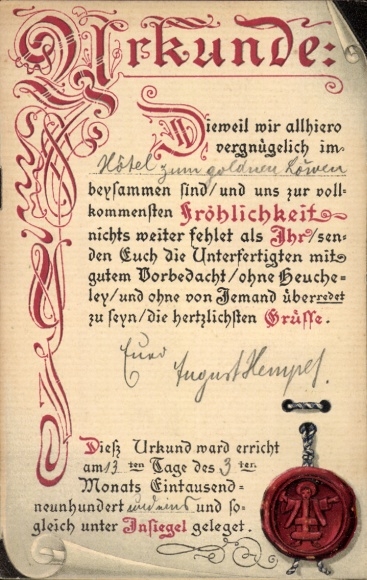 Urkunde:
Dieweil wir allhiero
vergnügelich im-
Hôtel zum goldnen Löwen
beysammen sind/und uns zur voll-
kommensten Fröhlichkeit
nichts weiter fehlet als Ihr/sen-
den Euch die Unterfertigten mit
gutem Vorbedacht/ohne Heuche-
ley/und ohne von Jemand überredet
zu seyn/die hertzlichsten Grüsse.
Euer
August Hempel.
Dieß Urkund ward erricht
am 13 ten Tage des 3 ten
Monats Eintausend-
neunhundert und eins und so-
gleich unter Insiegel geleget.